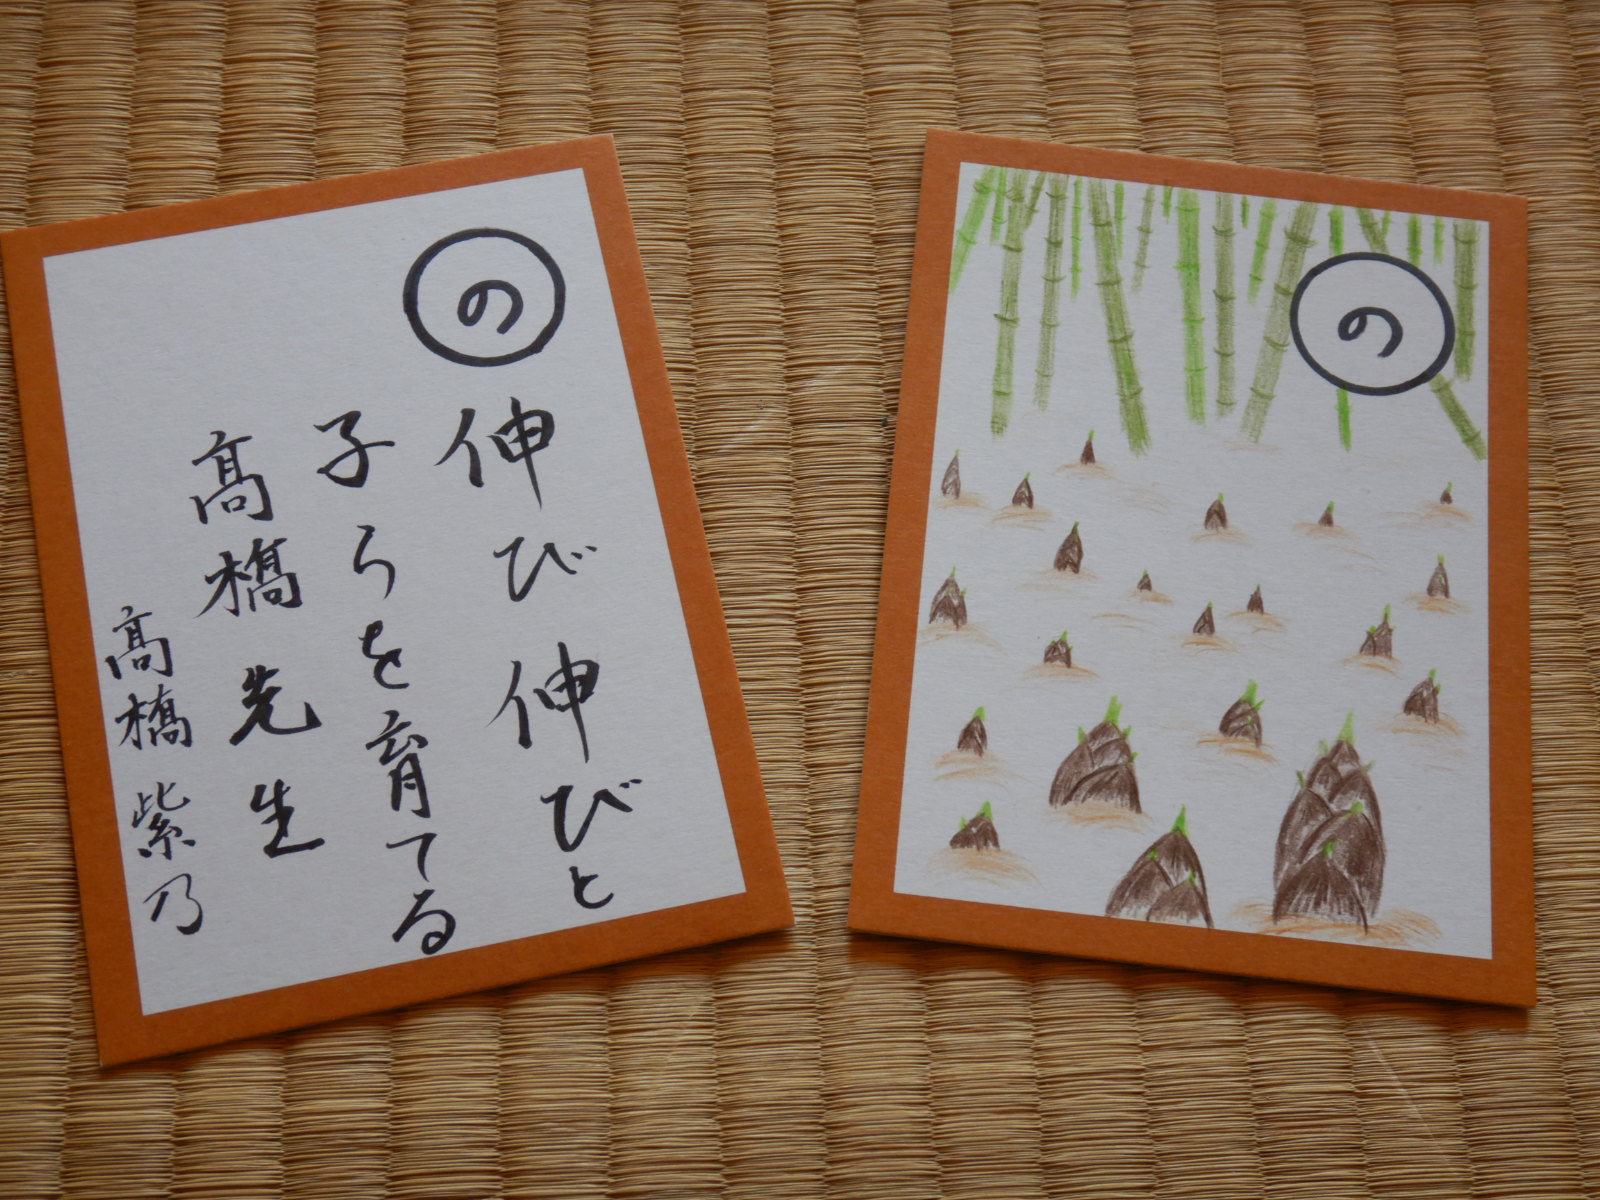 の
伸び伸びと
子らを育てる
髙橋先生
髙橋紫乃
の